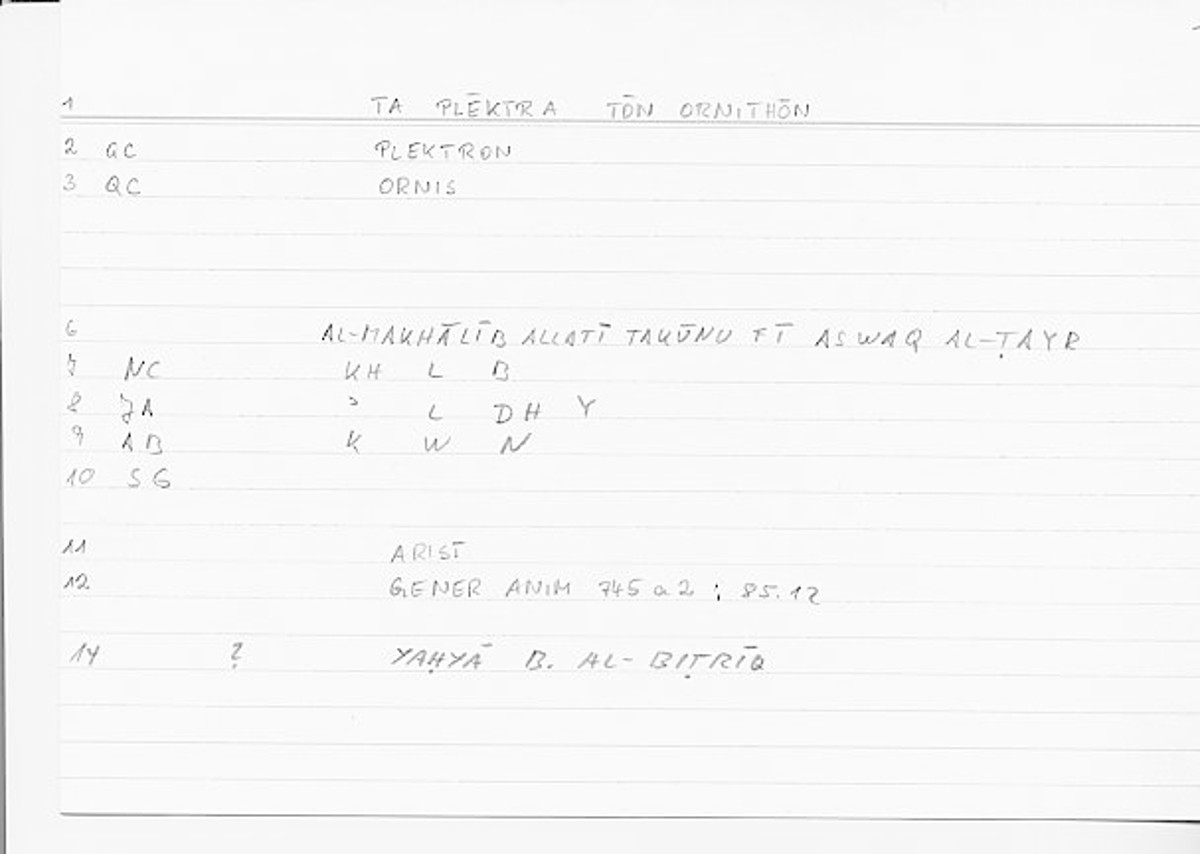 1 TA PLĒKTRA TŌN ORNITHŌN
2 QC PLEKTRON
3 QC ORNIS
6 AL-MAKHĀLĪB ALLATĪ TAKŪNU FĪ ASWAQ AL-ṬAYR
7 NC KH L B
8 JA ʾ L DH Y
9 AB K W N
10 SG
11 ARIST
12 GENER ANIM 745 a 2 ; 85.12
14 ? YAḤYĀ B. AL-BIṬRĪQ